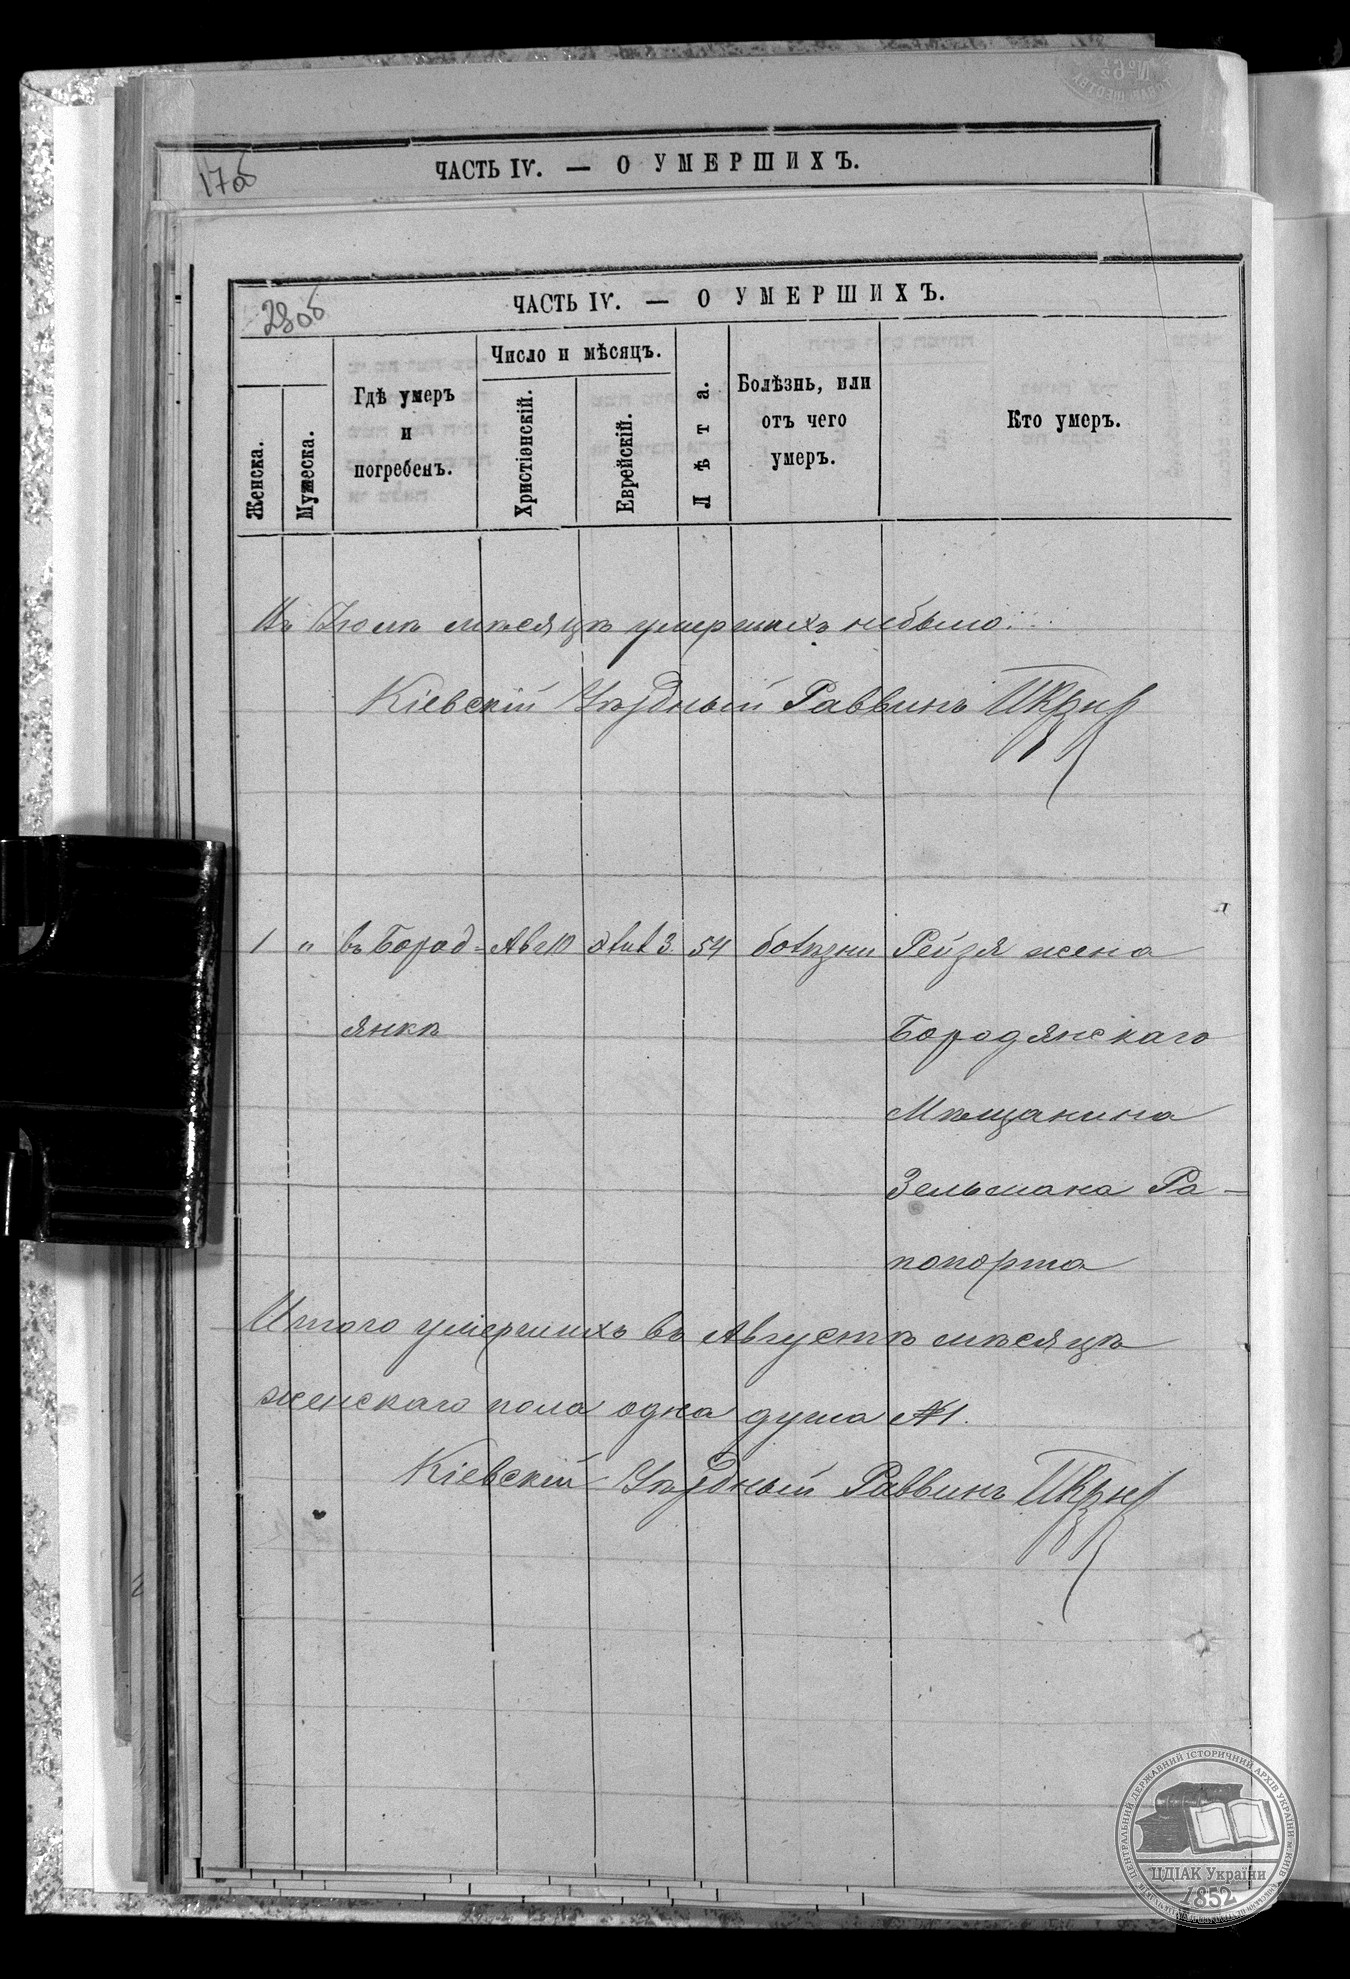 17об
ЧАСТЬ IV. — О УМЕРШИХЪ.
28об
ЧАСТЬ IV. — О УМЕРШИХЪ.
Женска.
Мужеска.
Гдѣ умеръ
и
погребенъ.
Число и мѣсяцъ.
Христіанскій.
Еврейскій.
Лѣта.
Болѣзнь, или
отъ чего
умеръ.
Кто умеръ.
Въ Іюлѣ мѣсяцѣ умершихъ небыло
Кіевскій Уѣздный Раввинъ
1 " въ Бород- Авг 3. 54 болѣзни Рейзя жена
янкѣ Бородянскаго
Мѣщанина
Зельмана Ра-
попорта
Итого умершихъ въ Августѣ мѣсяцѣ
женскаго пола одна душа №1.
Кіевскій Уѣздный Раввинъ
ЦЕНТРАЛЬНИЙ ДЕРЖАВНИЙ ІСТОРИЧНИЙ АРХІВ УКРАЇНИ м.КИЇВ
ЦДІАК України
1852